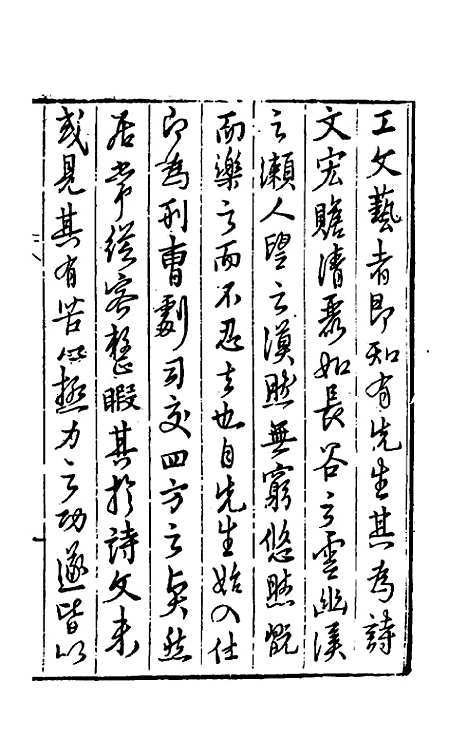 工文藝者即知有先生其為詩
文宏贍清曠如長谷之雲幽溪
之瀨人望之漠然無窮悠然甑
而樂之而不忍去也自先生始入仕
即為刑曹劇司交四方之矣然
居常從容整暇其於詩文未
或見其有苦心極力之功遂皆以